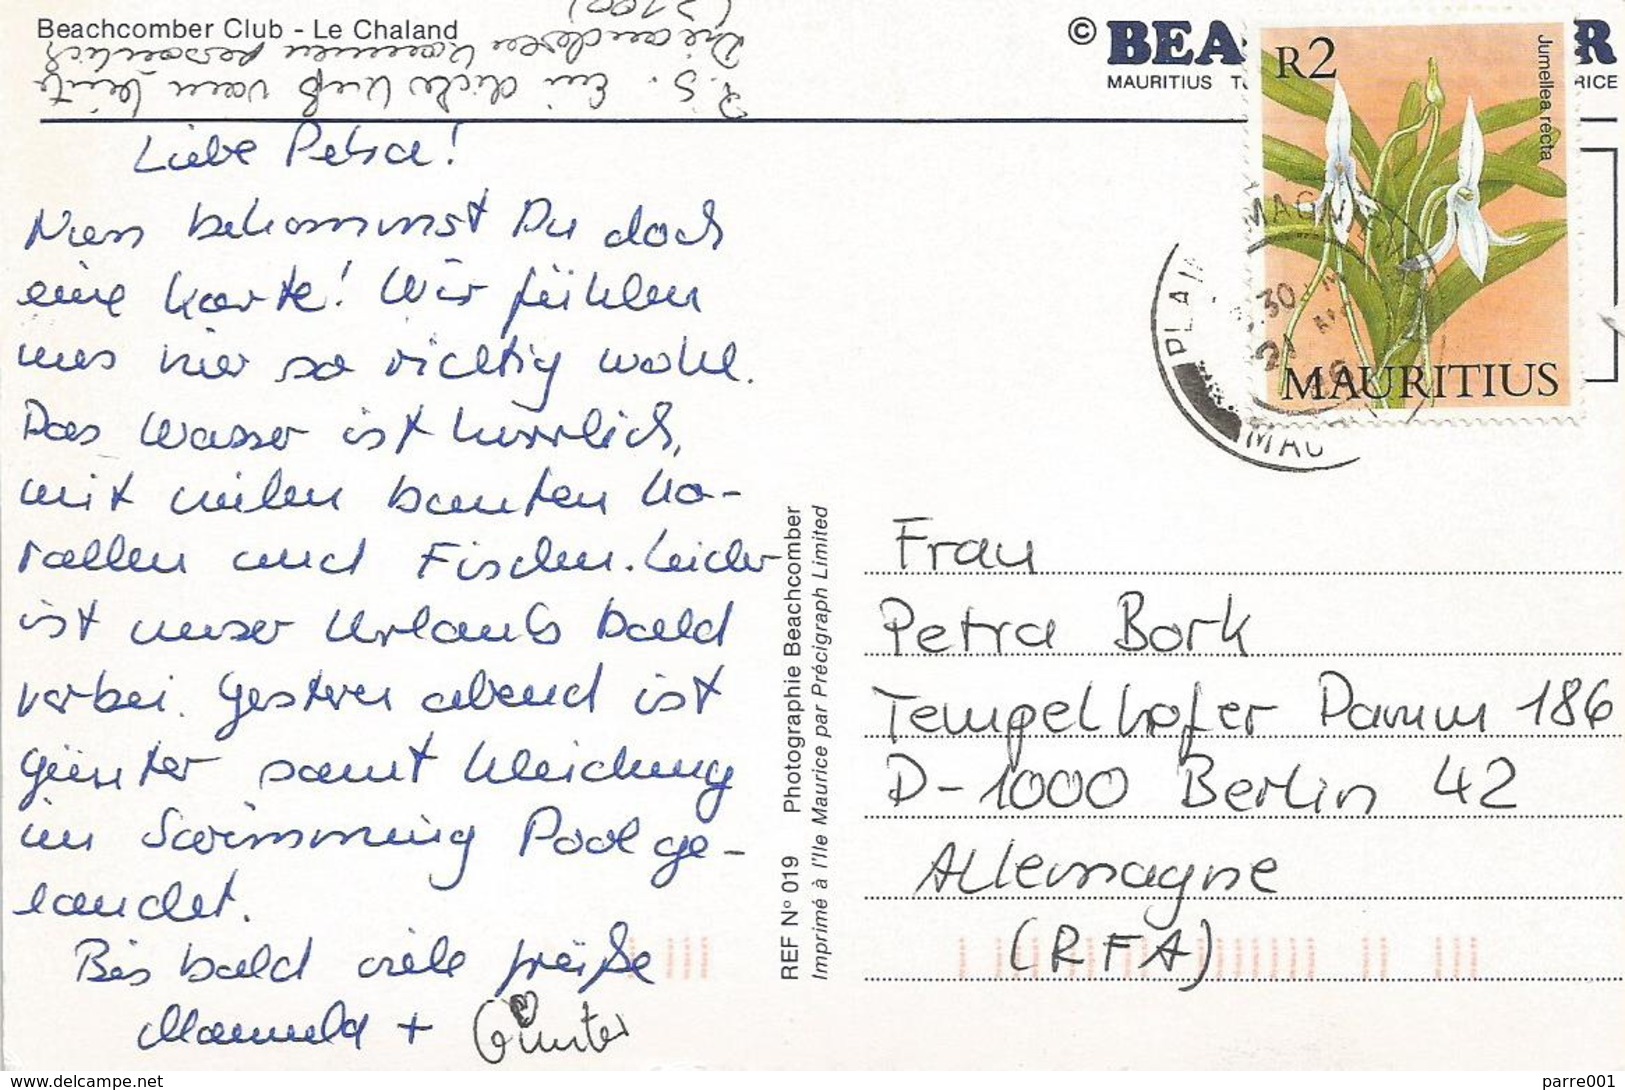 Beachcomber Club - Le Chaland
(2100)
Die anderen kommen persönlich
P.S. Ein dicker Kuß vom Günter
© BEA R
MAURITIUS RICE
R2
Jumellea recta
MAURITIUS
PLAI MAGN
30
MAU
Liebe Petra!
Nun bekommst Du doch
eine Karte! Wir fühlen
uns hier so richtig wohl.
Das Wasser ist herrlich,
mit vielen bunten Ko-
rallen und Fischen. Leider
ist unser Urlaub bald
vorbei. Gestern abend ist
Günter samt Kleidung
im Swimming Pool ge-
landet.
Bis bald viele Grüße
Manuela + Günter
REF N° 019 Photographie Beachcomber
Imprimé à l'Ile Maurice par Précigraph Limited
Frau
Petra Bork
Tempelhofer Damm 186
D-1000 Berlin 42
Allemagne
(RFA)
www.delcampe.net
parre001